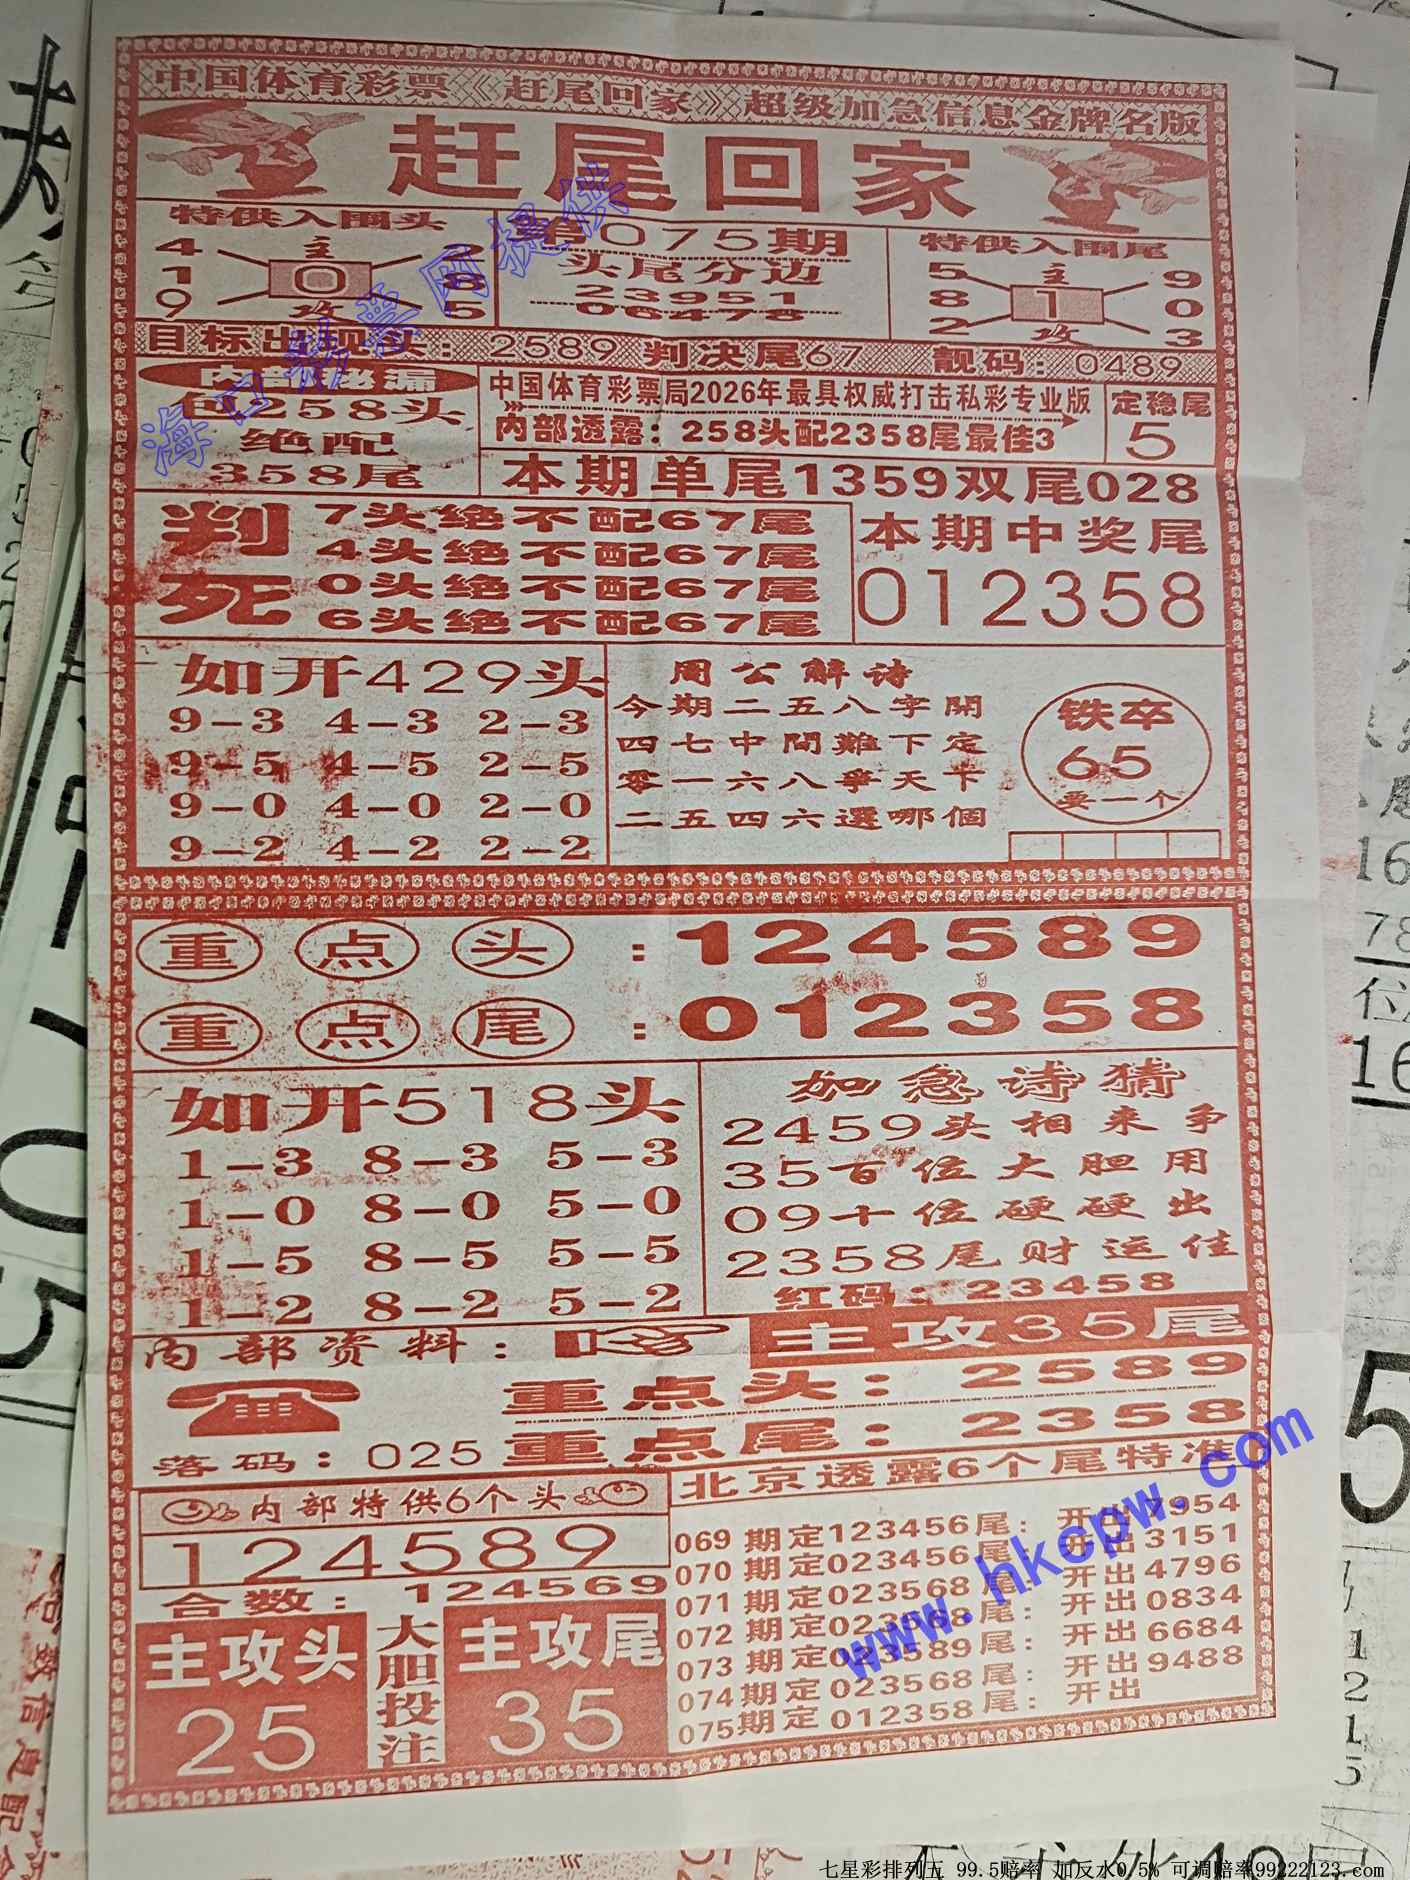 中国体育彩票《赶尾回家》超级加急信息金牌名版
赶尾回家
特供入围头
4 主 2
1 0 8
9 攻 5
第075期
头尾分边
23951
06478
特供入围尾
5 主 9
8 1 0
2 攻 3
目标出现实：2589 判决尾67 靓码：0489
内部泌漏
包258头
绝配
358尾
中国体育彩票局2026年最具权威打击私彩专业版
内部透露：258头配2358尾最佳3
定稳尾
5
本期单尾1359双尾028
判死
7头绝不配67尾
4头绝不配67尾
0头绝不配67尾
6头绝不配67尾
本期中奖尾
012358
如开429头
9-3 4-3 2-3
9-5 4-5 2-5
9-0 4-0 2-0
9-2 4-2 2-2
周公解诗
今期二五八字開
四七中間難下定
零一六八爭天下
二五四六選哪個
铁卒
65
要一个
重点头：124589
重点尾：012358
如开518头
1-3 8-3 5-3
1-0 8-0 5-0
1-5 8-5 5-5
1-2 8-2 5-2
加急诗猜
2459头相来争
35百位大胆用
09十位硬硬出
2358尾财运佳
红码：23458
内部资料：
主攻35尾
重点头：2589
重点尾：2358
落码：025
内部特供6个头
124589
合数：124569
主攻头
25
大胆投注
主攻尾
35
北京透露6个尾特准
069期定123456尾：开出7954
070期定023456尾：开出3151
071期定023568尾：开出4796
072期定023568尾：开出0834
073期定023589尾：开出6684
074期定023568尾：开出9488
075期定012358尾：开出
海口彩票网提供
www.hkcpw.com
七星彩排列五 99.5赔率 加反水0.5% 可调赔率99222123.com